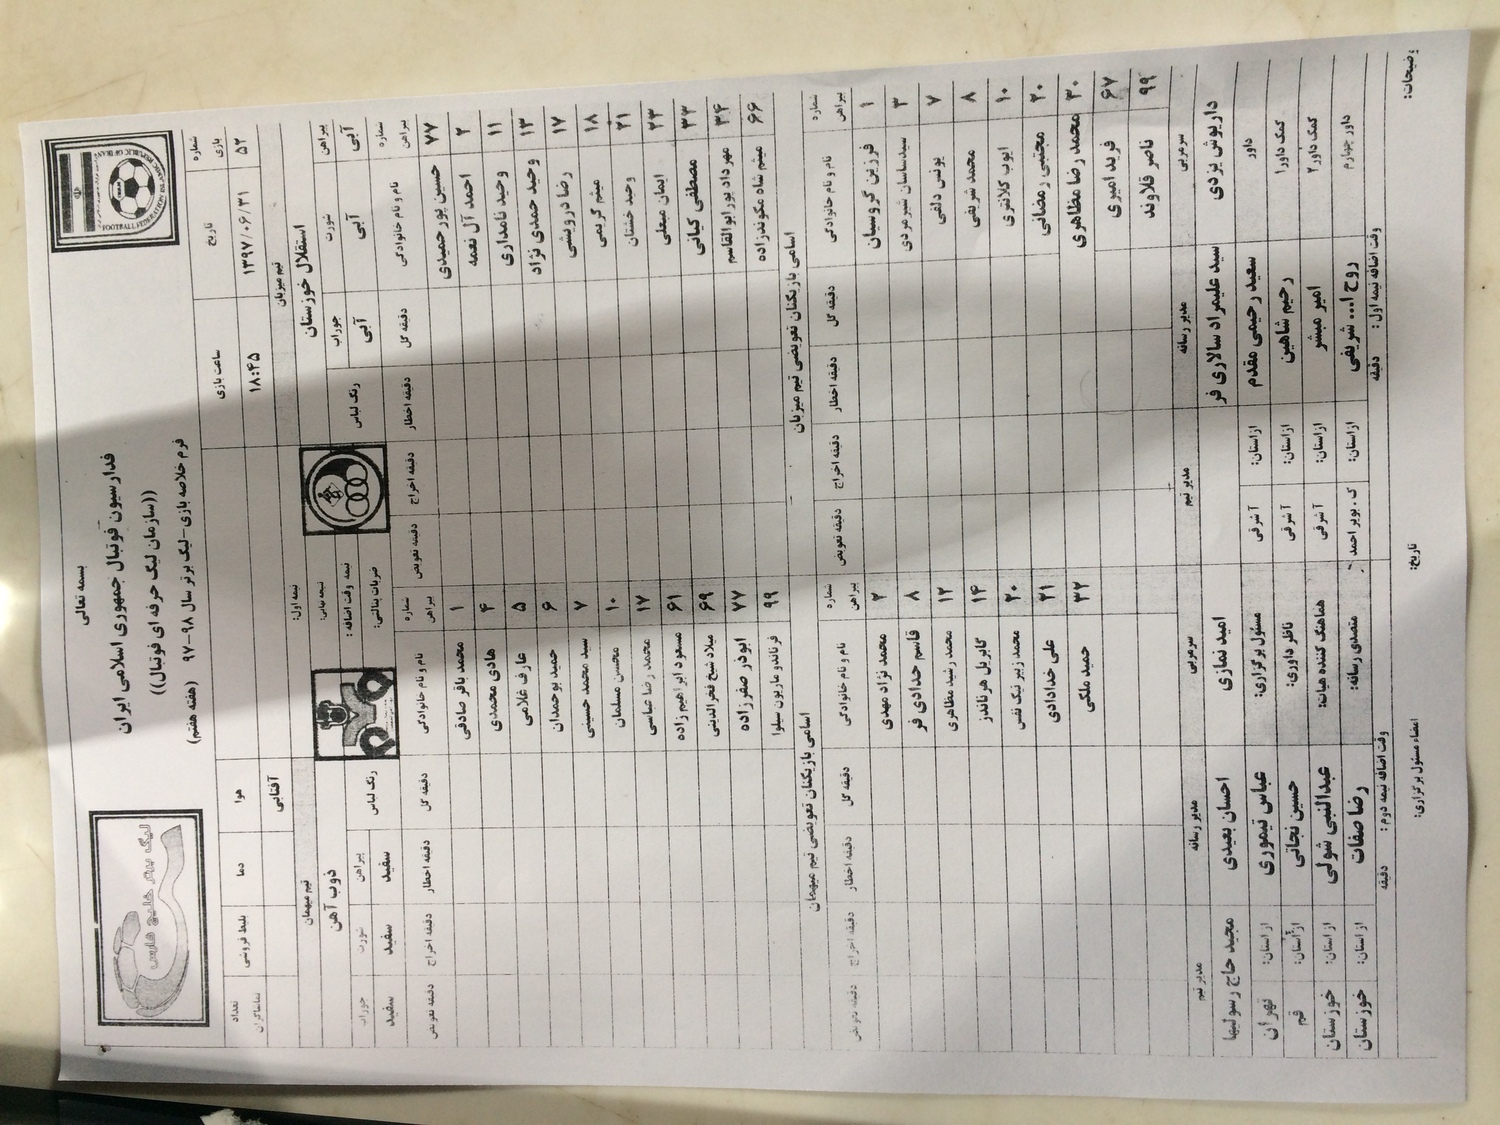 بسمه تعالی
فدارسیون فوتبال جمهوری اسلامی ایران
((سازمان لیگ حرفه ای فوتبال))
فرم خلاصه بازی-لیگ برتر سال ۹۸-۹۷ (هفته هفتم)
FOOTBALL FEDERATION ISLAMIC REPUBLIC OF IRAN
لیگ برتر خلیج فارس
شماره بازی تاریخ ساعت بازی هوا دما بلیط فروشی تعداد تماشاگران
۵۲ ۱۳۹۷/۰۶/۳۱ ۱۸:۴۵ آفتابی
تیم میزبان نیمه اول: تیم میهمان
استقلال خوزستان ذوب آهن
پیراهن شورت جوراب رنگ لباس نیمه وقت اضافه: رنگ لباس پیراهن شورت جوراب
آبی آبی آبی ضربات پنالتی: سفید سفید سفید
شماره پیراهن نام و نام خانوادگی دقیقه گل دقیقه اخطار دقیقه اخراج دقیقه تعویض شماره پیراهن نام و نام خانوادگی دقیقه گل دقیقه اخطار دقیقه اخراج دقیقه تعویض
۷۷ حسین پور حمیدی ۱ محمد باقر صادقی
۲ احمد آل نعمه ۴ هادی محمدی
۱۱ وحید نامداری ۵ عارف غلامی
۱۳ وحید حمدی نژاد ۶ حمید بوحمدان
۱۷ رضا درویشی ۷ سید محمد حسینی
۱۸ میثم کریمی ۱۰ محسن مسلمان
۲۱ وحید خشتان ۱۷ محمد رضا عباسی
۲۳ ایمان مبعلی ۶۱ مسعود ابراهیم زاده
۳۳ مصطفی کیانی ۶۹ میلاد شیخ فخرالدینی
۳۴ مهرداد پورابوالقاسم ۷۷ ابوذر صفرزاده
۶۶ میثم شاه مکوندزاده ۹۹ فرناندو ماریون سیلوا
اسامی بازیکنان تعویضی تیم میزبان اسامی بازیکنان تعویضی تیم میهمان
شماره پیراهن نام و نام خانوادگی دقیقه گل دقیقه اخطار دقیقه اخراج دقیقه تعویض شماره پیراهن نام و نام خانوادگی دقیقه گل دقیقه اخطار دقیقه اخراج دقیقه تعویض
۱ فرزین گروسیان ۲ محمد نژاد مهدی
۳ سیدساسان شیرمردی ۸ قاسم حدادی فر
۷ یونس دلفی ۱۲ محمد رشید مظاهری
۸ محمد شریفی ۱۴ گابریل هرناندز
۱۰ ایوب کلانتری ۲۰ محمد زبیر نیک نفس
۲۰ مجتبی رمضانی ۲۱ علی خدادادی
۳۰ محمد رضا مظاهری ۳۲ حمید ملکی
۶۷ فرید امیری
۹۹ ناصر قلاوند
سرمربی مدیر رسانه مدیر تیم سرمربی مدیر رسانه مدیر تیم
داریوش یزدی سید علیمراد سالاری فر امید نمازی احسان بعیدی مجید حاج رسولیها
داور سعید رحیمی مقدم از استان: آ شرقی مسئول برگزاری: عباس تیموری از استان: تهران
کمک داور۱ رحیم شاهین از استان: آ شرقی ناظر داوری: حسین نجاتی از استان: قم
کمک داور ۲ امیر مبشر از استان: آ شرقی هماهنگ کننده هیات: عبدالنبی شولی از استان: خوزستان
داور چهارم روح ا... شریفی از استان: ک بویر احمد متصدی رسانه: رضا صفات از استان: خوزستان
وقت اضافه نیمه اول: دقیقه وقت اضافه نیمه دوم: دقیقه
توضیحات: تاریخ: امضاء مسئول برگزاری: